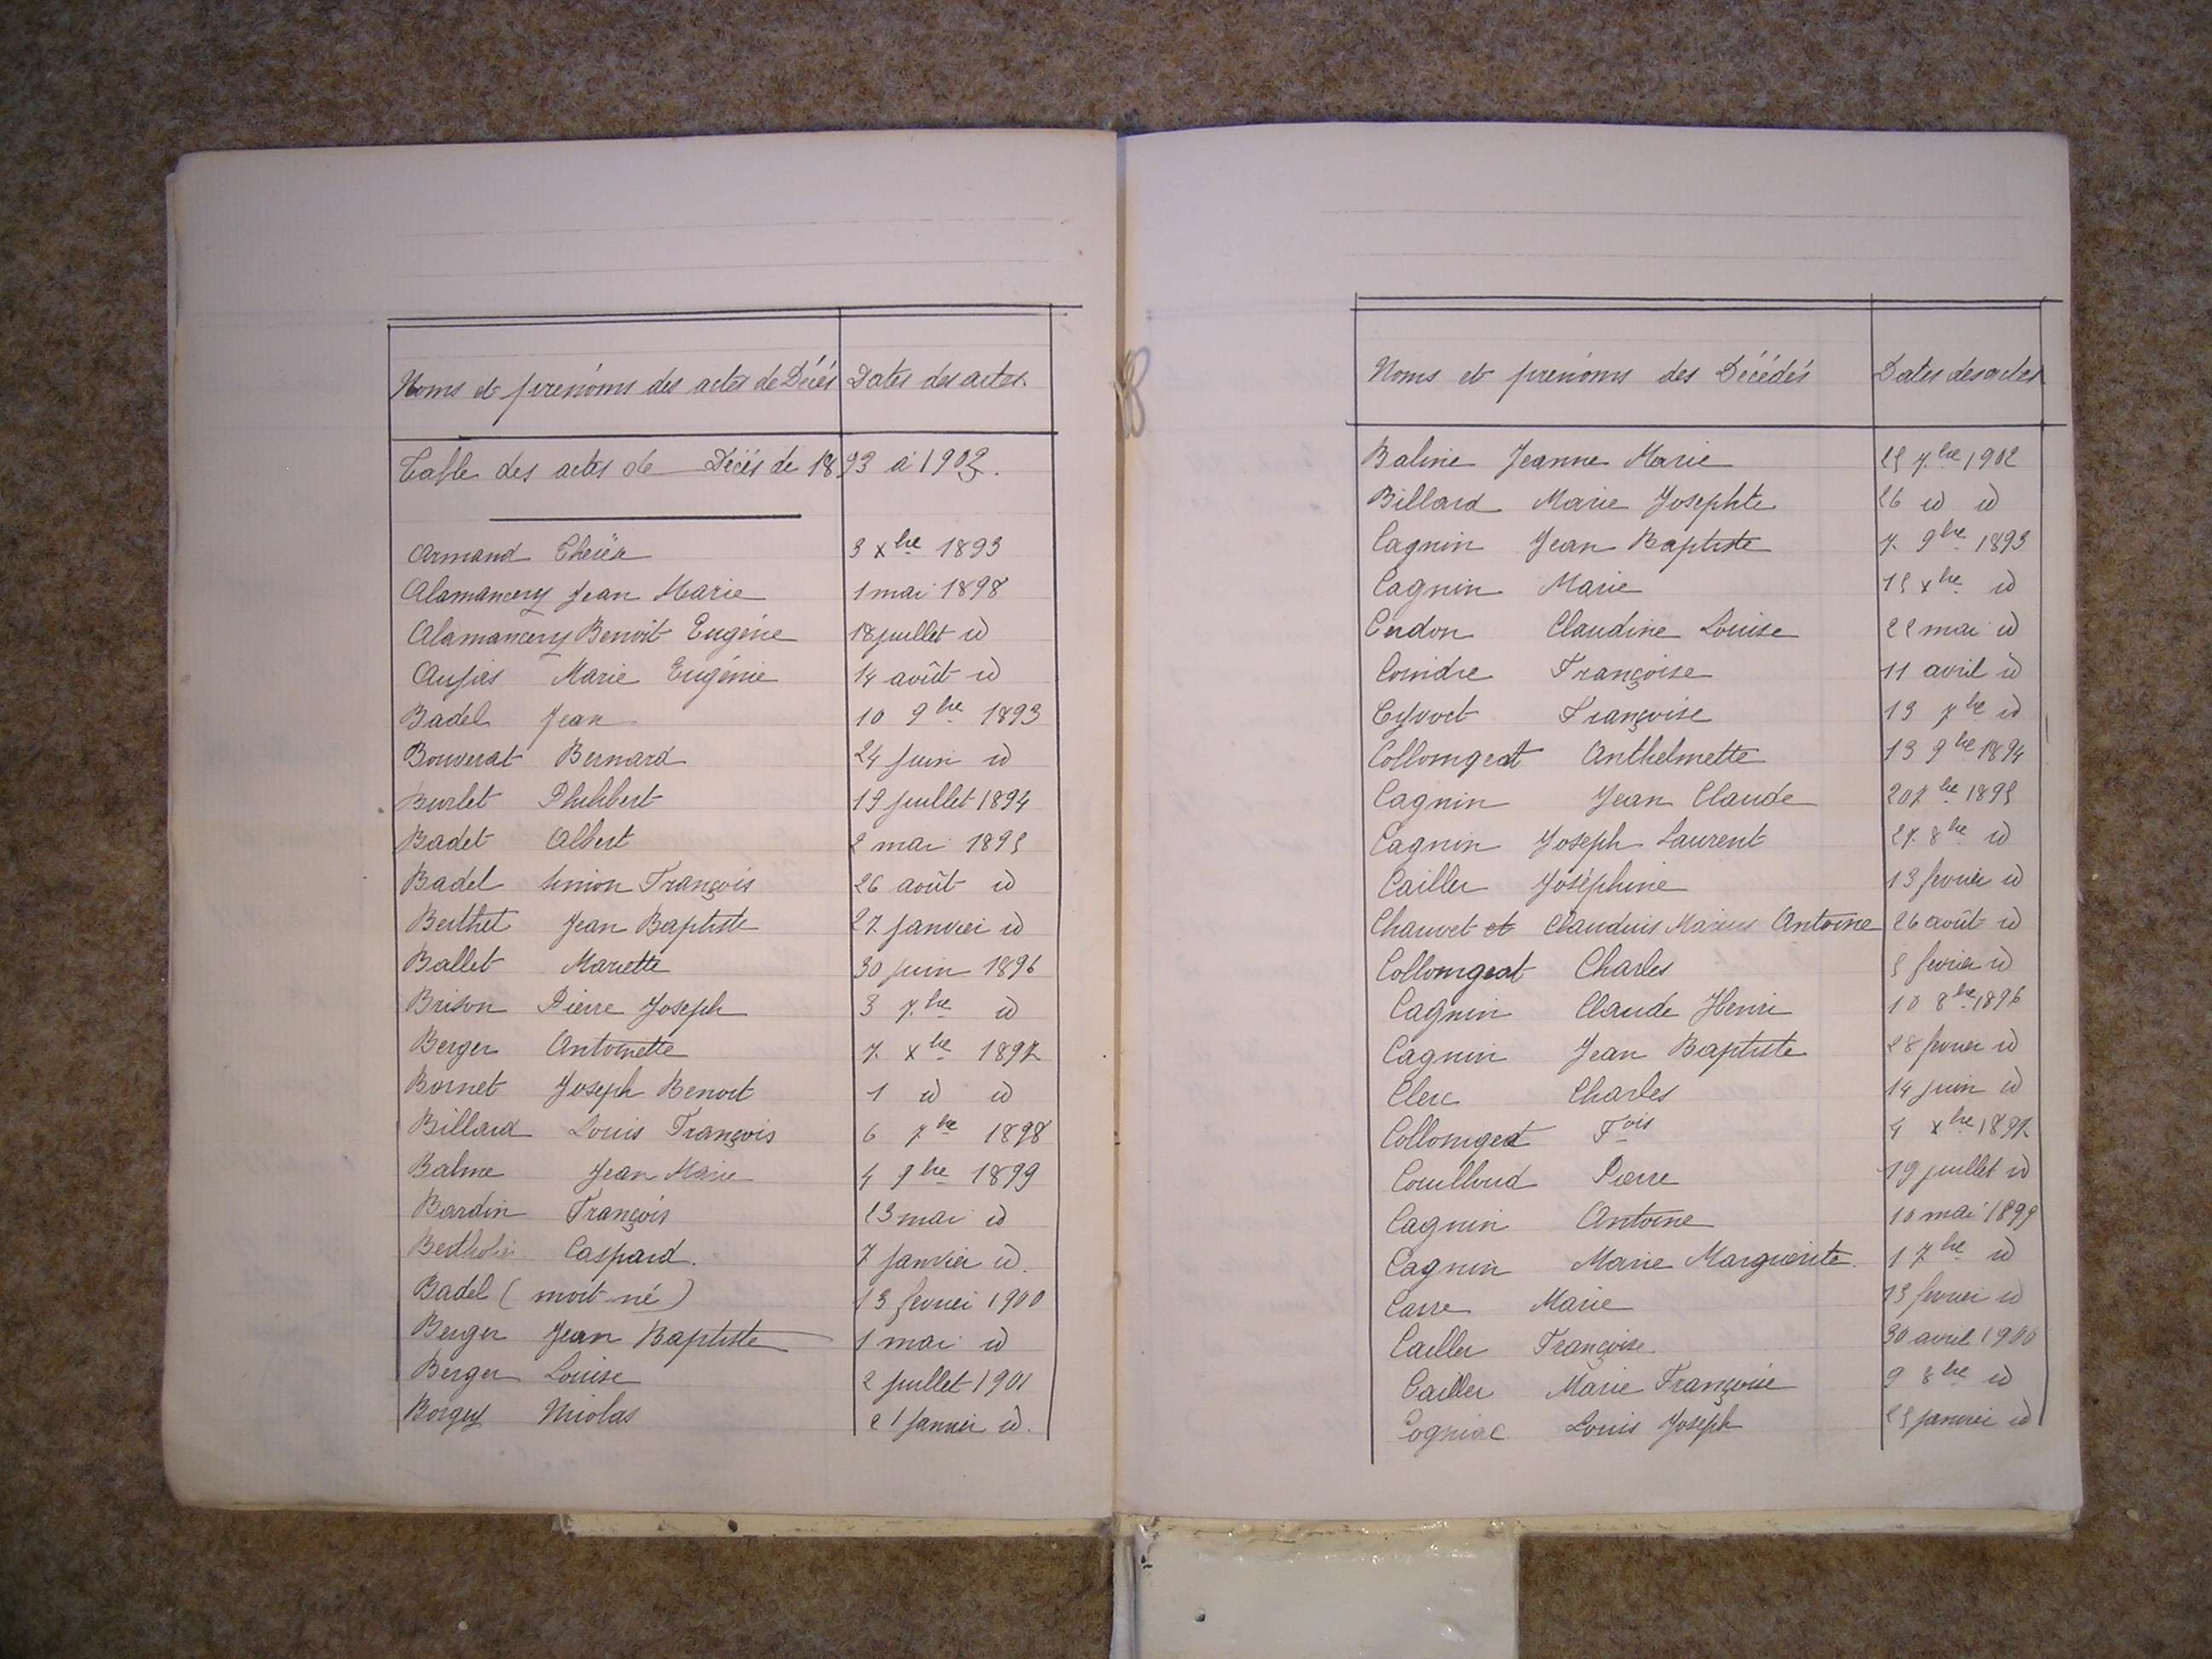 Noms et prénoms des actes de Décés Dates des actes
Table des actes de Décés de 1893 à 1902.
Armand 3 xbre 1893
Alamancery Jean Marie 1 mai 1898
Alamancery Benoit Eugène 18 juillet id
Marie Eugénie 14 août id
Badel Jean 10 9bre 1893
Bouverat Bernard 24 juin id
Burlet Philibert 19 juillet 1894
Badet Albert 2 mai 1895
Badel Simon François 26 août id
Berthet Jean Baptiste 27 janvier id
Ballet Mariette 30 juin 1896
Brison Pierre Joseph 3 7bre id
Berger Antoinette 7 xbre 1897
Bornet Joseph Benoit 1 id id
Billard Louis François 6 7bre 1898
Balme Jean Marie 4 9bre 1899
Bardin François 23 mai id
Gaspard. 7 janvier id.
Badel (mort né) 13 fevrier 1900
Berger Jean Baptiste 1 mai id
Berger Louise 2 juillet 1901
Borgey Nicolas 21 janvier id.
Noms et prénoms des Décédés Dates des actes
Balme Jeanne Marie 25 7bre 1902
Billard Marie Josephte 26 id id
Cagnin Jean Baptiste 7 9bre 1893
Cagnin Marie 15 xbre id
Cerdon Claudine Louise 22 mai id
Coindre Françoise 11 avril id
Cyvoct Françoise 13 7bre id
Collomgeat Anthelmette 13 9bre 1894
Cagnin Jean Claude 20 7bre 1895
Cagnin Joseph Laurent 27 8bre id
Cailler Joséphine 13 fevrier id
Chauvet et Claudius Marius Antoine 26 août id
Collomgeat Charles 5 fevrier id
Cagnin Claude Henri 10 8bre 1896
Cagnin Jean Baptiste 28 fevrier id
Clerc Charles 14 juin id
Collomgeat Fois 4 xbre 1897
Couilloud Pierre 19 juillet id
Cagnin Antoine 10 mai 1899
Cagnin Marie Marguerite. 1 7bre id
Carre Marie 13 fevrier id
Cailler Françoise 30 avril 1900
Cailler Marie Françoise 9 8bre id
Cogniac Louis Joseph 25 janvier id